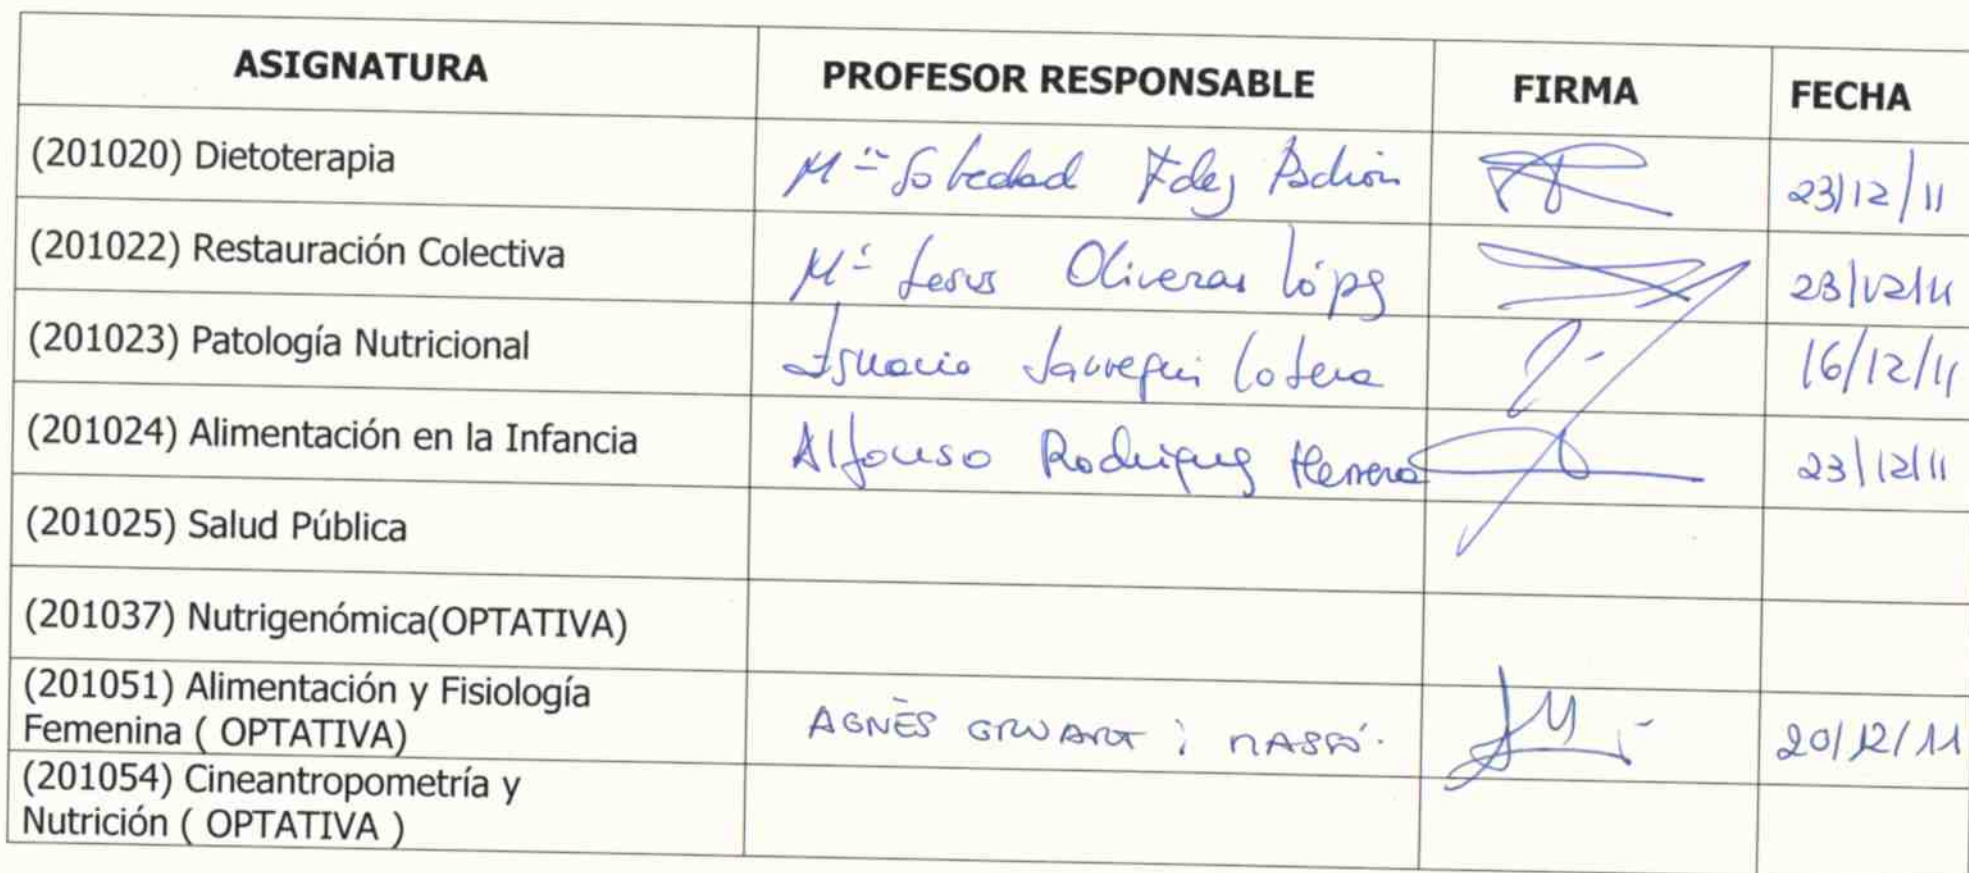 ASIGNATURA PROFESOR RESPONSABLE FIRMA FECHA
(201020) Dietoterapia Mª Soledad Fdez Pachón 23/12/11
(201022) Restauración Colectiva Mª Jesus Oliveras López 23/12/11
(201023) Patología Nutricional Ignacio Jauregui Lobera 16/12/11
(201024) Alimentación en la Infancia Alfonso Rodriguez Herrera 23/12/11
(201025) Salud Pública
(201037) Nutrigenómica(OPTATIVA)
(201051) Alimentación y Fisiología
Femenina ( OPTATIVA) AGNÈS GRUART i MASSÓ. 20/12/11
(201054) Cineantropometría y
Nutrición ( OPTATIVA )